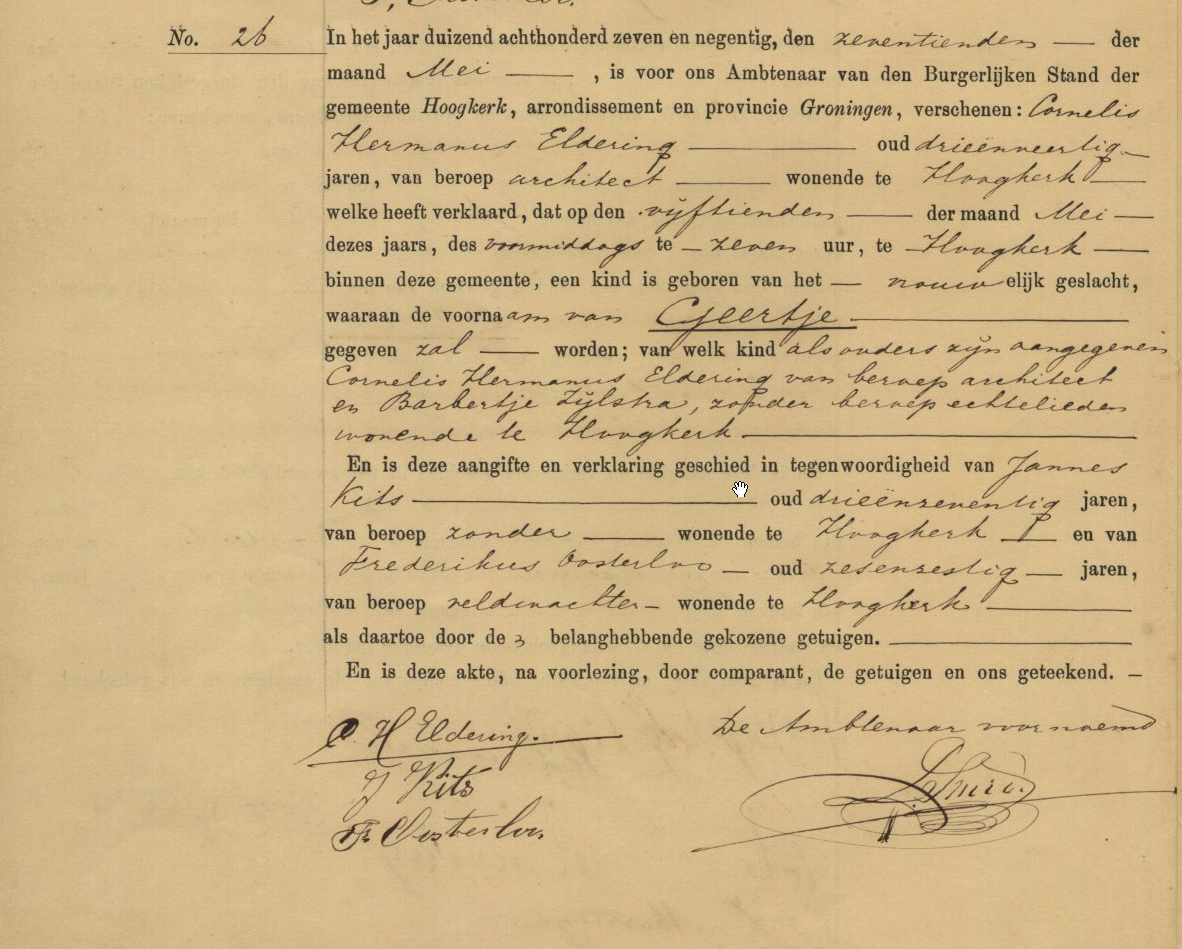 No. 26
In het jaar duizend achthonderd zeven en negentig, den zeventienden der
maand Mei , is voor ons Ambtenaar van den Burgerlijken Stand der
gemeente Hoogkerk, arrondissement en provincie Groningen, verschenen: Cornelis
Hermanus Eldering oud drieënveertig
jaren, van beroep architect wonende te Hoogkerk
welke heeft verklaard, dat op den vijftienden der maand Mei
dezes jaars, des voormiddags te zeven uur, te Hoogkerk
binnen deze gemeente, een kind is geboren van het vrouwelijk geslacht,
waaraan de voornaam van Geertje
gegeven zal worden; van welk kind als ouders zijn aangegeven
Cornelis Hermanus Eldering van beroep architect
en Barbertje Zijlstra, zonder beroep echtelieden
wonende te Hoogkerk
En is deze aangifte en verklaring geschied in tegenwoordigheid van Jannes
Kits oud drieënzeventig jaren,
van beroep zonder wonende te Hoogkerk en van
Frederikus Oosterloo oud zesenzestig jaren,
van beroep veldwachter wonende te Hoogkerk
als daartoe door de belanghebbende gekozene getuigen.
En is deze akte, na voorlezing, door comparant, de getuigen en ons geteekend.
C. H Eldering. De Ambtenaar voornoemd
J Kits
Fr Oosterloo